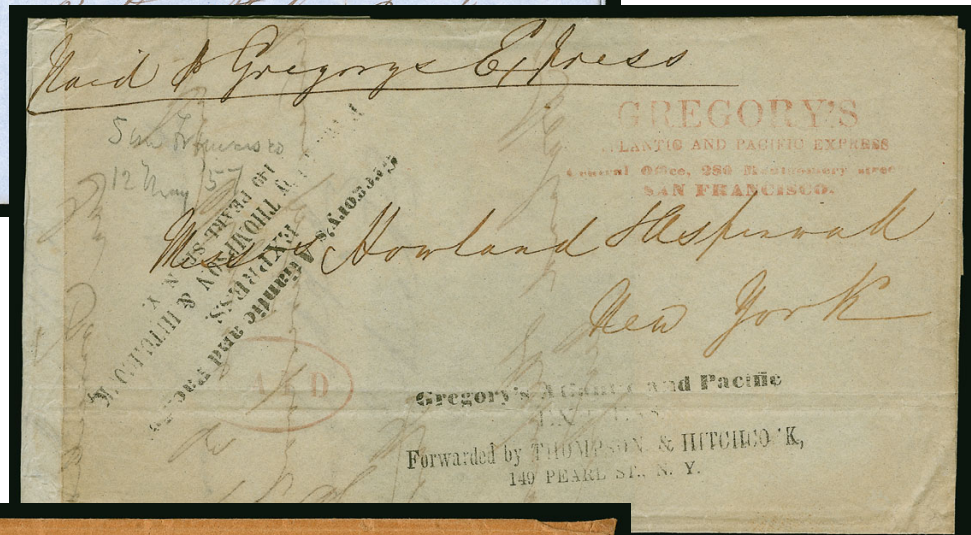 Paid p Gregorys Express
GREGORY'S
ATLANTIC AND PACIFIC EXPRESS
General Office, 280 Montgomery street
SAN FRANCISCO.
San Francisco
12 May 5
Gregory's Atlantic and Pacific
EXPRESS.
THOMPSON & HITCHCOCK
149 PEARL ST., N. Y.
Messrs Howland & Aspinwall
New York
Gregory's Atlantic and Pacific
EXPRESS
Forwarded by THOMPSON & HITCHCOCK,
149 PEARL ST., N. Y.